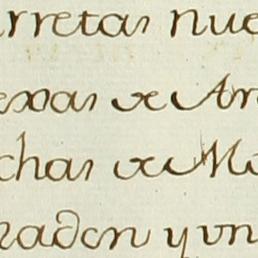 arretas nue
exas de Ar
chas de Mo
raden y un